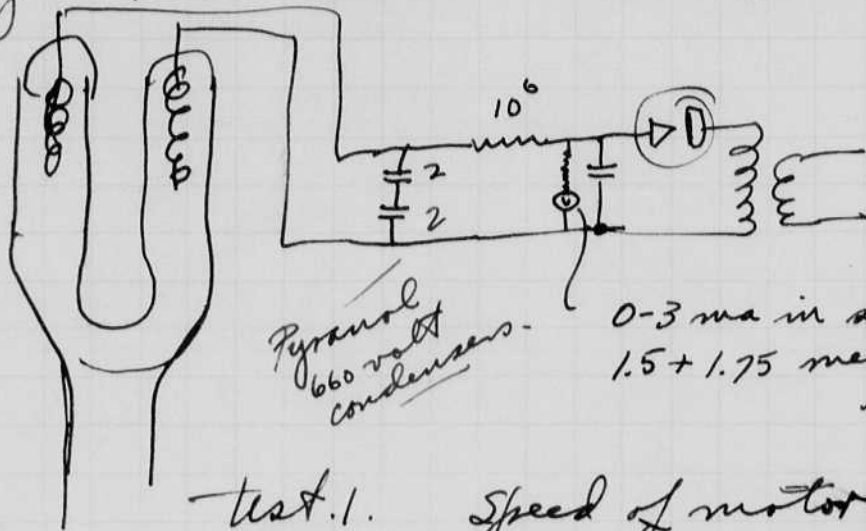 10⁶
2
2
Pyranol
660 volt
condensers.
0-3 ma in
1.5 + 1.75
test.1. Speed of motor